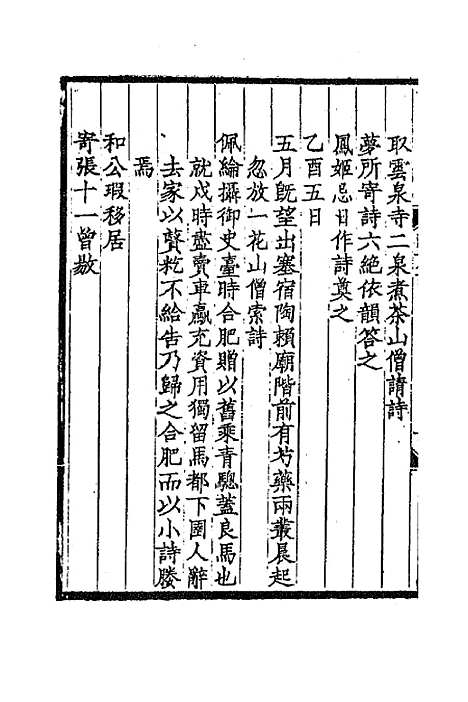 取雲泉寺二泉煮茶山僧請詩
夢所寄詩六絶依韻答之
鳳姬忌日作詩奠之
乙酉五日
五月旣望出塞宿陶賴廟階前有芍藥兩叢晨起
忽放一花山僧索詩
佩綸攝御史臺時合肥贈以舊乘靑驄蓋良馬也
就戍時盡賣車贏充資用獨留馬都下圉人辭
去家以㷟䊠不給告乃歸之合肥而以小詩媵
焉
和公瑕移居
寄張十一曾敭